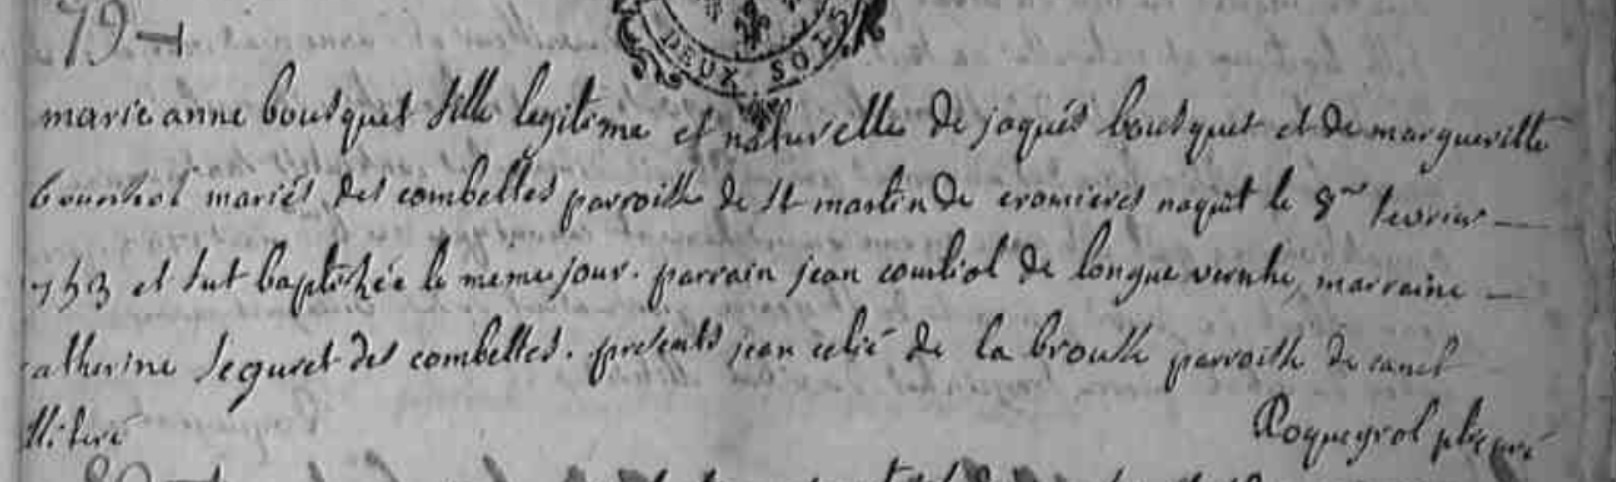 79
DEUX SOLS
marie anne bousquet fille legitime et naturelle de jaques bousquet et de margueritte
mariés des combelles parroisse de st martin de cromieres naquit le 8me fevrier
753 et fut baptisée le meme jour. parrain jean de longue vernhe, marraine
catherine seguret des combelles. presents jean celié de la brousse parroisse de canet
illiteré
Roqueyrol